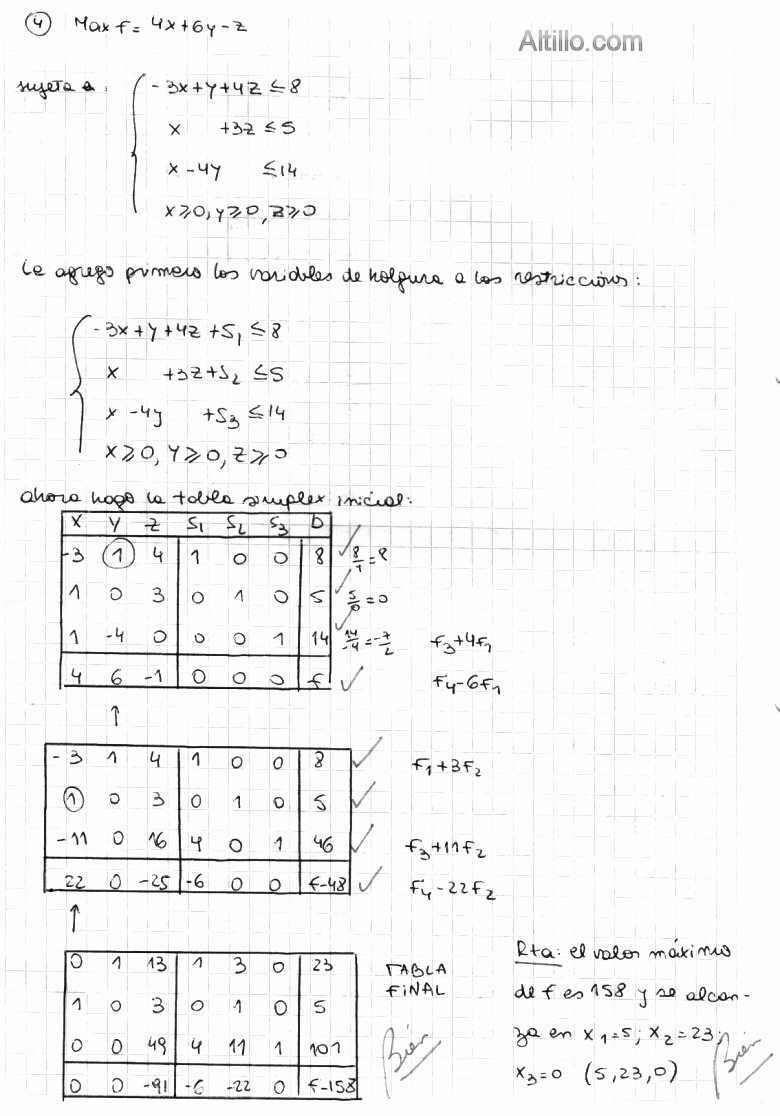 4 Max f = 4x+6y-z
Altillo.com
sujeta a:
-3x+y+4z ≤ 8
x +3z ≤ 5
x -4y ≤ 14
x≥0, y≥0, z≥0
Le agrego primero las variables de holgura a las restricciones:
-3x+y+4z+S1 ≤ 8
x +3z+S2 ≤ 5
x -4y +S3 ≤ 14
x≥0, y≥0, z≥0
ahora hago la tabla simplex inicial:
x y z S1 S2 S3 b
-3 1 4 1 0 0 8 8/1 = 8
1 0 3 0 1 0 5 5/0 = 0
1 -4 0 0 0 1 14 14/-4 = -7/2 F3+4F1
4 6 -1 0 0 0 f F4-6F1
↑
-3 1 4 1 0 0 8 F1+3F2
1 0 3 0 1 0 5
-11 0 16 4 0 1 46 F3+11F2
22 0 -25 -6 0 0 f-48 F4-22F2
↑
0 1 13 1 3 0 23
1 0 3 0 1 0 5
0 0 49 4 11 1 101
0 0 -91 -6 -22 0 f-158
TABLA
FINAL
Bien
Rta: el valor máximo
de f es 158 y se alcan-
za en x1=5; x2=23;
x3=0 (5,23,0)
Bien